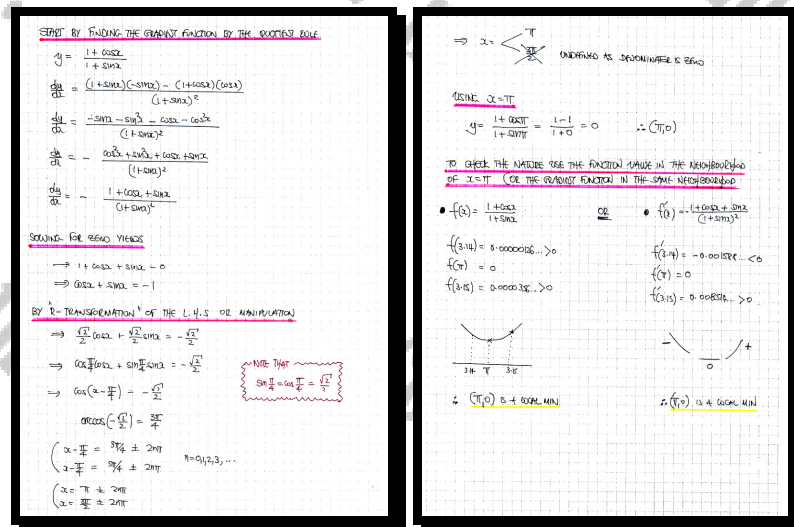 START BY FINDING THE GRADIENT FUNCTION BY THE QUOTIENT RULE
y = (1 + cosx)/(1 + sinx)
dy/dx = ((1+sinx)(-sinx) - (1+cosx)(cosx))/(1+sinx)²
dy/dx = (-sinx - sin²x - cosx - cos²x)/(1+sinx)²
dy/dx = - (cos²x + sin²x + cosx + sinx)/(1+sinx)²
dy/dx = - (1 + cosx + sinx)/(1+sinx)²
SOLVING FOR ZERO YIELDS
⇒ 1 + cosx + sinx = 0
⇒ cosx + sinx = -1
BY "R-TRANSFORMATION" OF THE L.H.S OR MANIPULATION
⇒ √2/2 cosx + √2/2 sinx = -√2/2
⇒ cosπ/4 cosx + sinπ/4 sinx = -√2/2
⇒ cos(x-π/4) = -√2/2
NOTE THAT
sin π/4 = cos π/4 = √2/2
arccos(-√2/2) = 3π/4
(x-π/4 = 3π/4 ± 2nπ
(x-π/4 = 5π/4 ± 2nπ
n=0,1,2,3,...
(x = π ± 2nπ
(x = 3π/2 ± 2nπ
⇒ x = < π
3π/2 UNDEFINED AS DENOMINATER IS ZERO
USING x=π
y = (1+cosπ)/(1+sinπ) = (1-1)/(1+0) = 0 ∴ (π,0)
TO CHECK THE NATURE USE THE FUNCTION VALUE IN THE NEIGHBOURHOOD
OF x=π (OR THE GRADIENT FUNCTION IN THE SAME NEIGHBOURHOOD
• f(x) = (1+cosx)/(1+sinx)
OR
• f'(x) = -(1+cosx+sinx)/(1+sinx)²
f(3.14) = 0.00000126...>0
f(π) = 0
f(3.15) = 0.0000356...>0
f'(3.14) = -0.001588...<0
f'(π) = 0
f'(3.15) = 0.008512...>0
3.14 π 3.15
- 0 +
∴ (π,0) IS A LOCAL MIN
∴ (π,0) IS A LOCAL MIN